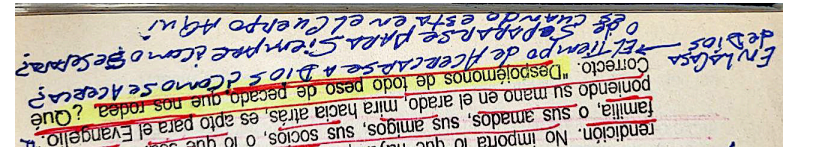 rendición. No importa lo que
familia, o sus amados, sus amigos, sus socios, o lo que
poniendo su mano en el arado, mira hacia atrás, es apto para el Evangelio.
Correcto. "Despojémonos de todo peso de pecado que nos rodea ¿Qué
EN LA CASA
de DIOS
El Tiempo de AcercARSE A DIOS ¿Como se Acerca?
o de SepaRARSE PARA Siempre ¿como
es cuando esta en el cuerpo AQUI